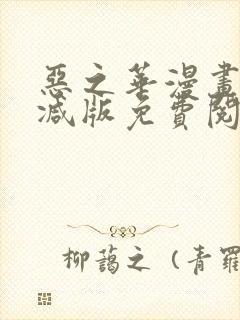 惡之華漫畫
減版免費閱
柳藹之（青羅